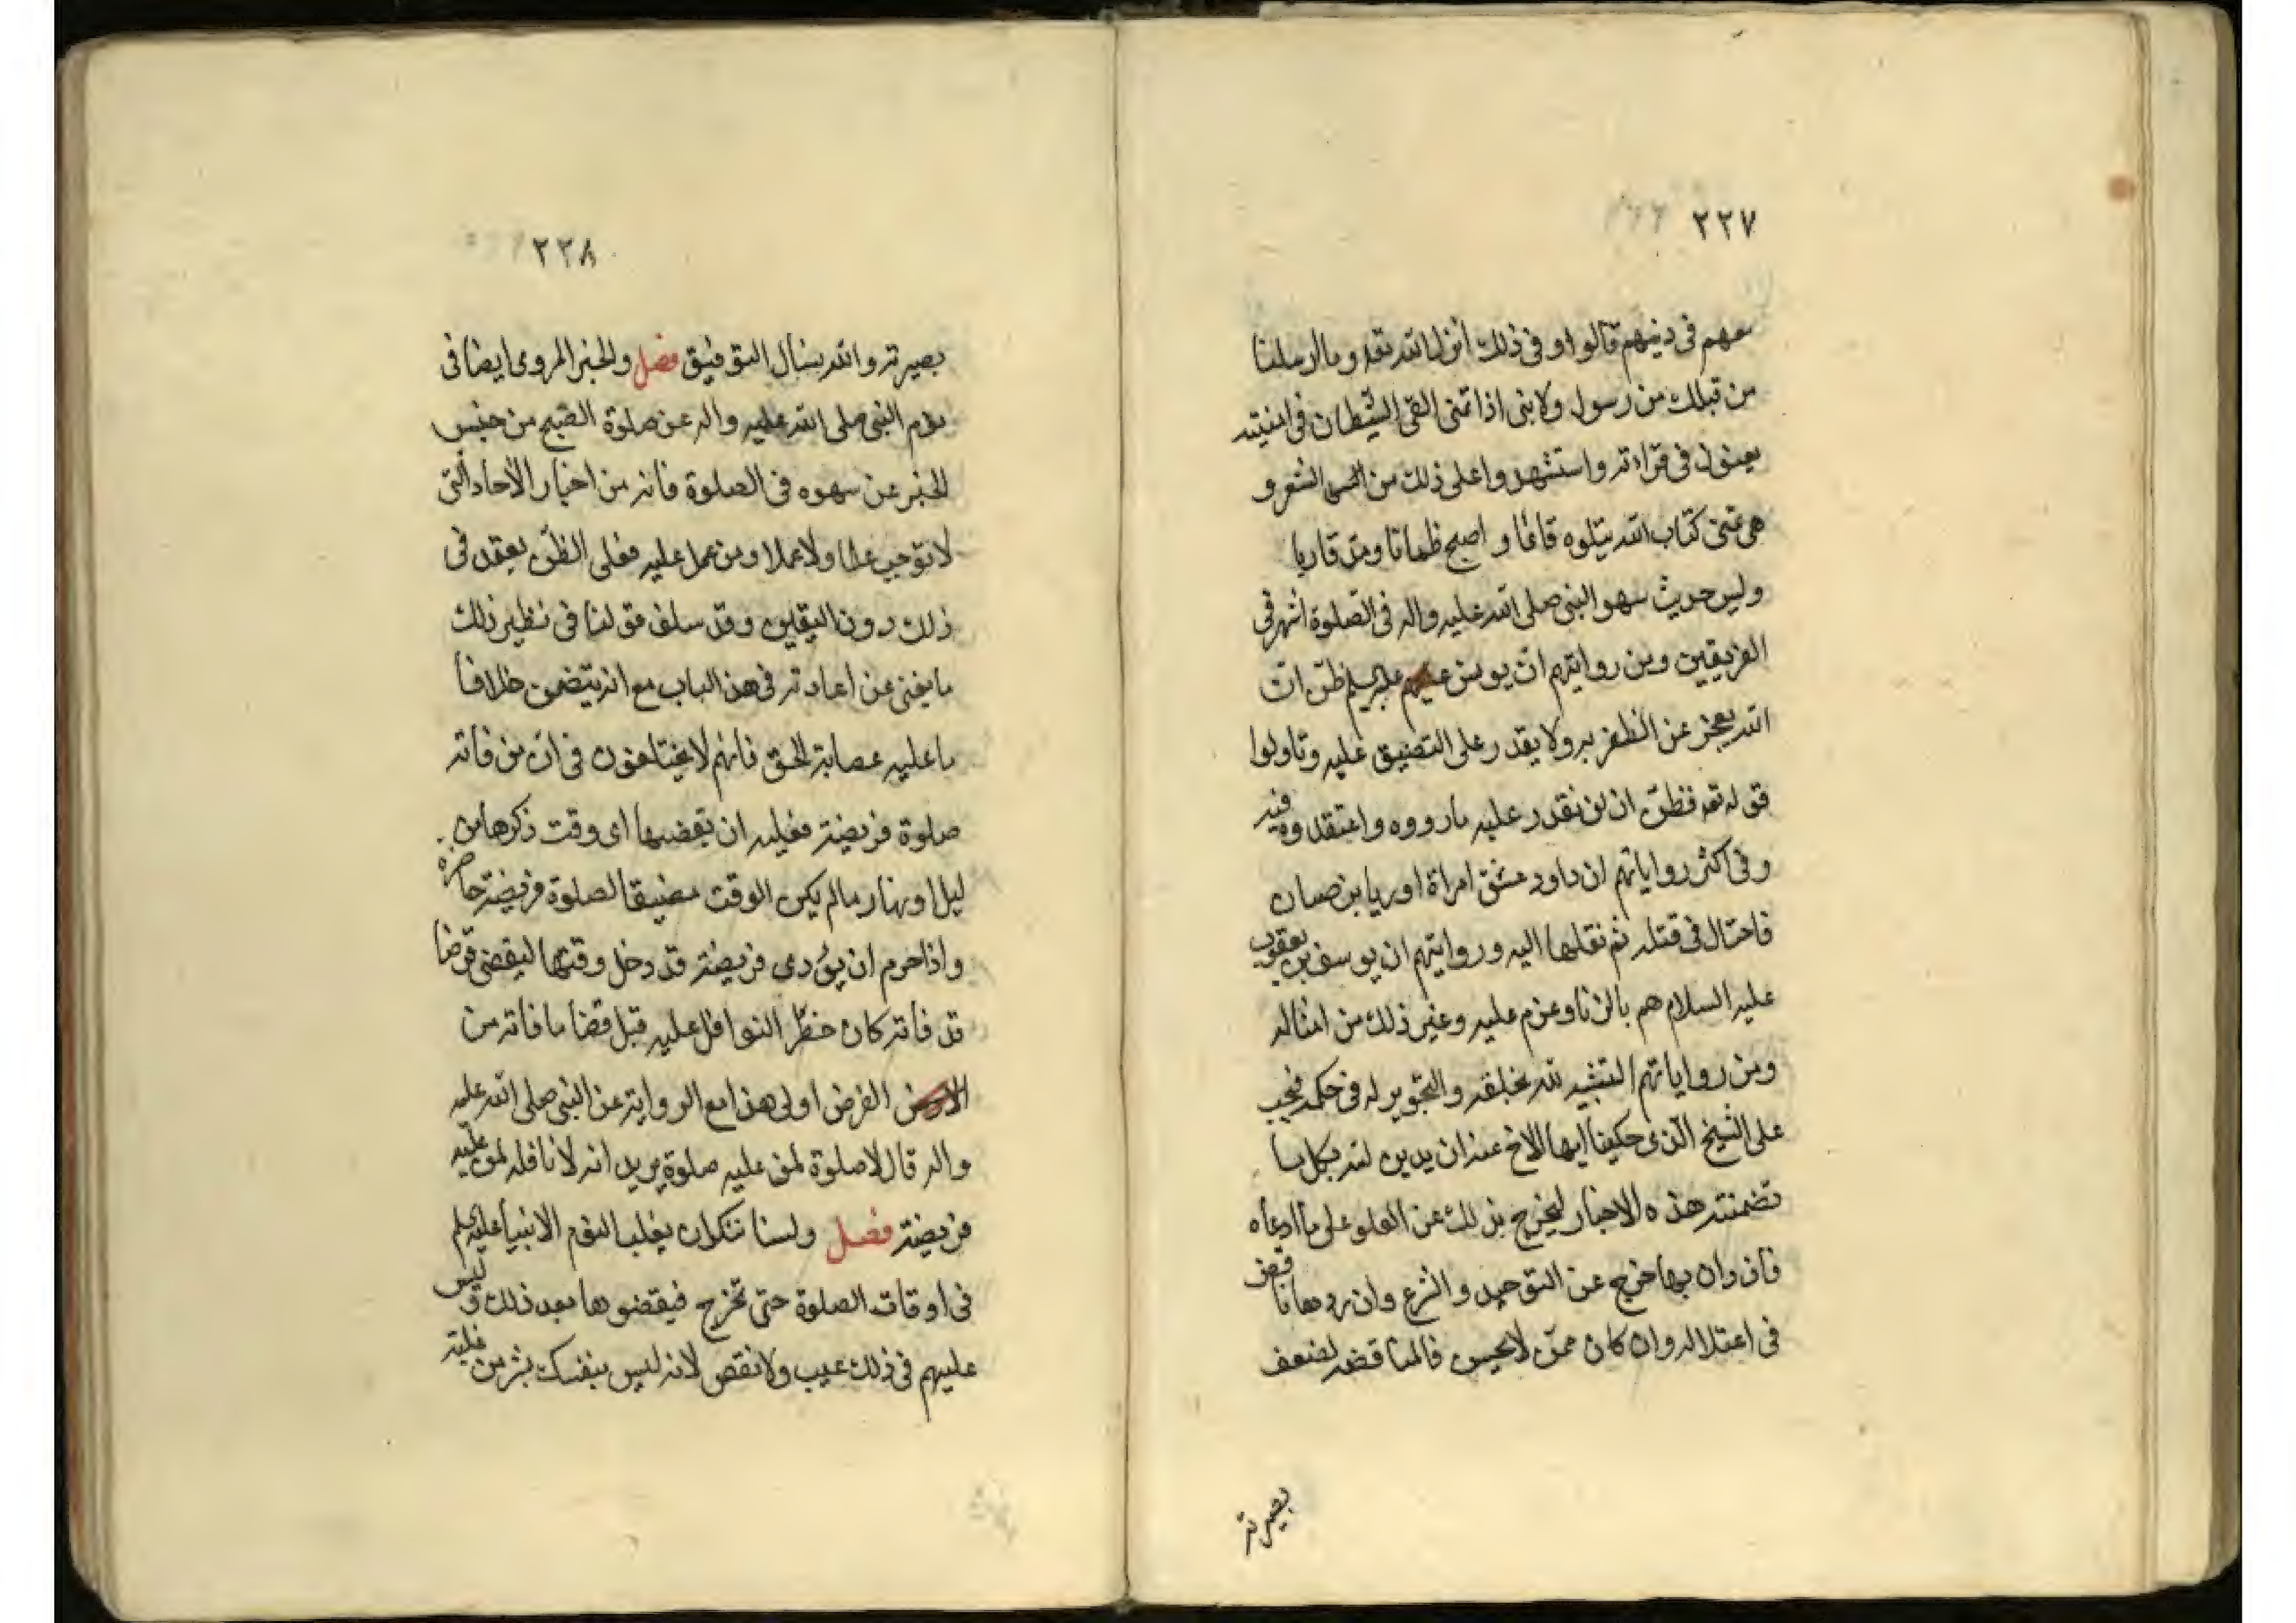 ٢٢٧
معهم في دينهم قالوا وفي ذلك انزل الله تعه وما ارسلنا
من قبلك من رسول ولا نبي اذا تمنى القى الشيطان في امنيته
يعنون في قراءته واستشهدوا على ذلك من الشعر و
هي تمنى كتاب الله يتلوه قائما و اصبح ظمانا ومن قاريا
وليس حديث سهو النبي صلى الله عليه واله في الصلوة اشهر في
الفريقين ومن روايتهم ان يونس عليه السلم ظن ان
الله يعجز عن الظفر به ولا يقدر على التضييق عليه وتاولوا
قوله تعه فظن ان لن نقدر عليه مارووه واعتقدوه فيه
وفي اكثر رواياتهم ان داود عشق امراة اوريا بن حنان
فاحتال في قتله ثم نقلها اليه وروايتهم ان يوسف بن يعقوب
عليه السلام هم بالزنا وعزم عليه وغير ذلك من امثاله
ومن رواياتهم التشبيه لله بخلقه والتجوير له في حكمه فيجب
على الشيخ الذي حكينا ايها الاخ عنه ان يدين لله بكل ما
تضمنته هذه الاخبار ليخرج بذلك عن الغلو على ما ادعاه
فان دان بها خرج عن التوحيد والشرع وان ردها ناقض
في اعتلاله وان كان ممن لا يحسن فالمناقضه لضعف
بصيرته
٢٢٨
بصيرته والله يسال التوفيق فصل والخبر المروى ايضا في
نوم النبي صلى الله عليه واله عن صلوة الصبح من جنس
الخبر عن سهوه في الصلوة فانه من اخبار الأحاد التي
لا توجب علما ولا عملا ومن عمل عليه فعلى الظن يعتمد في
ذلك دون اليقين وقد سلف قولنا في نظير ذلك
ما يغني عن اعادته في هذا الباب مع انه يتضمن خلاف
ما عليه عصابة الحق فانهم لا يختلفون في ان من فاته
صلوة فريضة فعليه ان يقضيها اى وقت ذكرها من
ليل او نهار ما لم يكن الوقت مضيقا لصلوة فريضة حاضرة
واذا حرم ان يؤدى فريضة قد دخل وقتها ليقضى فرضا
قد فاته كان حظر النوافل عليه قبل قضا ما فاته من
الفرض اولى هذا مع الرواية عن النبي صلى الله عليه
واله قال لاصلوة لمن عليه صلوة يريد انه لا نافله لمن عليه
فريضة فصل ولسنا ننكر ان يغلب النوم الانبيا عليهم السلم
في اوقات الصلوة حتى تخرج فيقضوها بعد ذلك وليس
عليهم في ذلك عيب ولا نقص لانه ليس ينفك بشر من غلبة